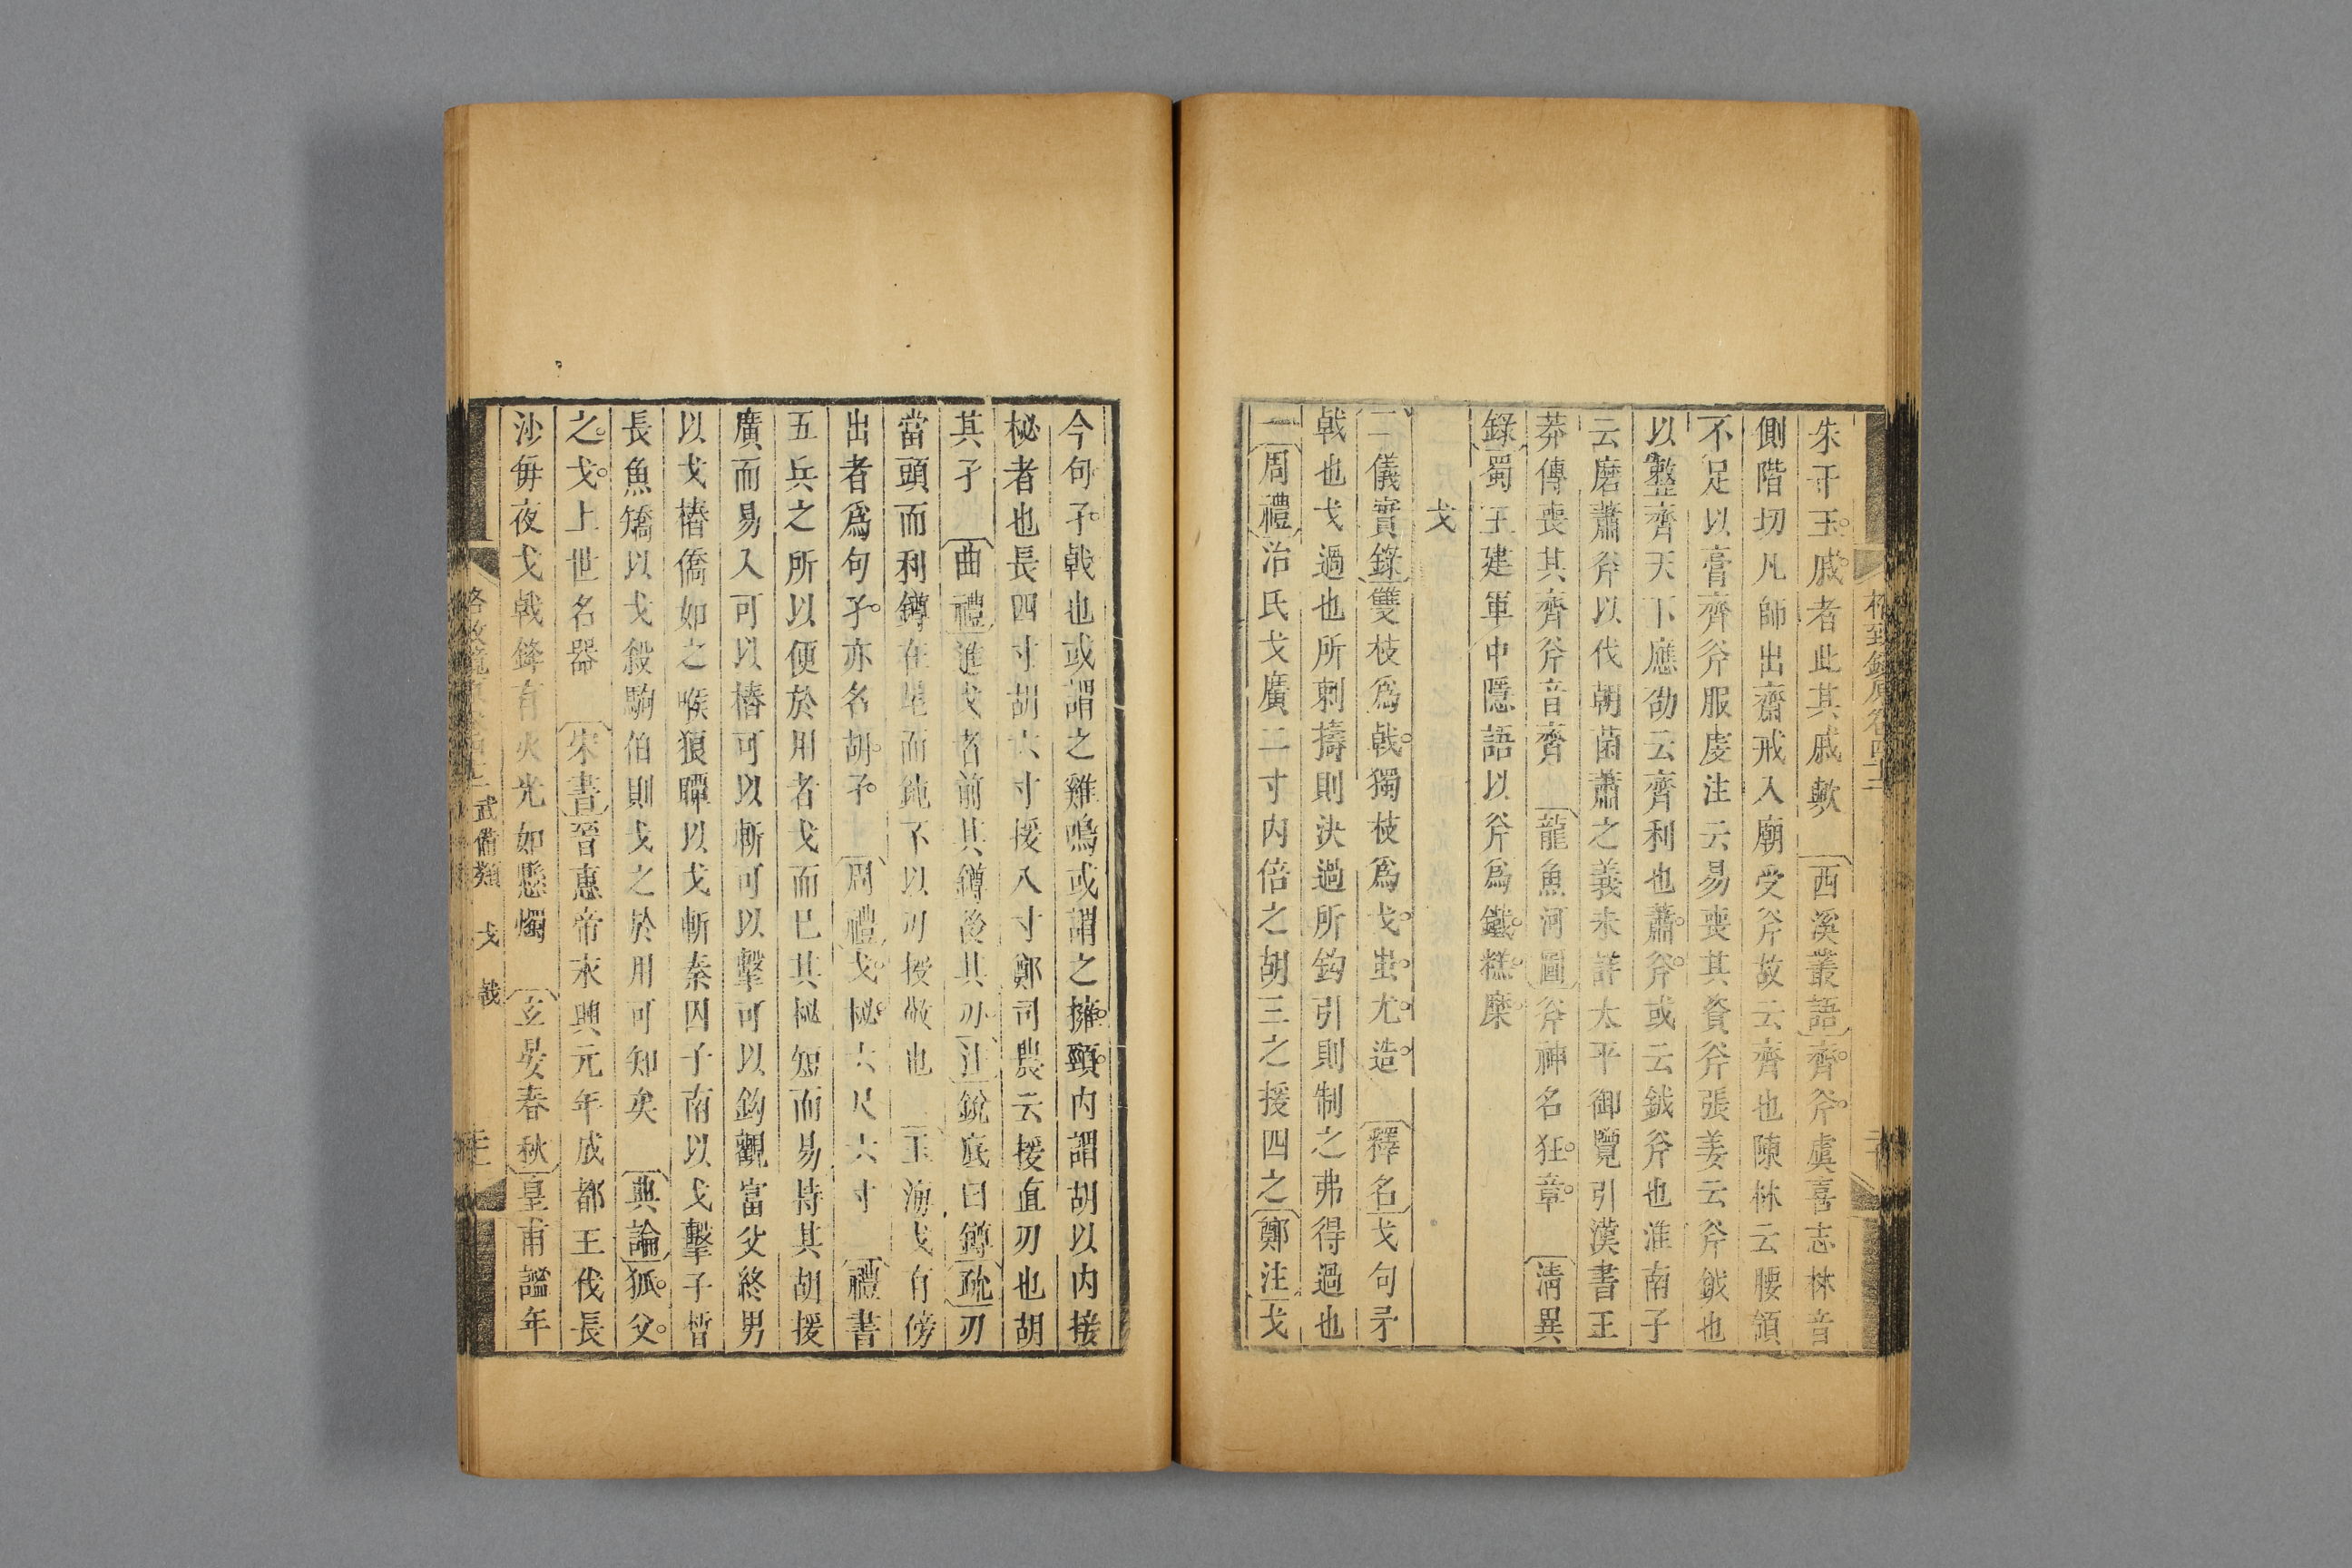 朱干玉戚者此其戚歟　西溪叢語齊斧虞喜志林音
側階切凡師出齋戒入廟受斧故云齊也陳林云腰領
不足以膏齊斧服虔注云易喪其資斧張姜云斧鉞也
以整齊天下應劭云齊利也蕭斧或云鉞斧也淮南子
云磨蕭斧以伐朝菌蕭之義未詳太平御覽引漢書王
莽傳喪其齊斧音齊　龍魚河圖斧神名狂章　清異
錄蜀王建軍中隱語以斧爲鐵糕糜
戈
二儀實錄雙枝爲戟獨枝爲戈蚩尤造　釋名戈句矛
戟也戈過也所刺擣則決過所鈎引則制之弗得過也
一周禮冶氏戈廣二寸内倍之胡三之援四之鄭注戈
今句孑戟也或謂之雞鳴或謂之擁頸内謂胡以内接
柲者也長四寸胡六寸援八寸鄭司農云援直刃也胡
其孑　曲禮進戈者前其鐏後其刃注銳底曰鐏疏刃
當頭而利鐏在尾而鈍不以刃授敬也　玉海戈有傍
出者爲句孑亦名胡孑　周禮戈柲六尺六寸　禮書
五兵之所以便於用者戈而已其柲短而易持其胡援
廣而易入可以樁可以斬可以擊可以鈎觀富父終男
以戈樁僑如之喉狼瞫以戈斬秦囚子南以戈擊子晳
長魚矯以戈殺駒伯則戈之於用可知矣　典論狐父
之戈上世名器　宋書晉惠帝永興元年成都王伐長
沙每夜戈戟鋒有火光如懸燭　玄晏春秋皇甫謐年
武備類　戈　戟